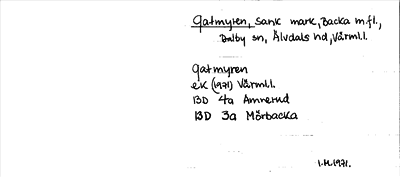 Gatmyren, sank mark, Backa m fl.,
Dalby sn, Älvdals hd, Värml.l.
Gatmyren
eK (1971) Värml.l.
BD 4a Amnerud
BD 3a Mörbacka
I.H.1971.